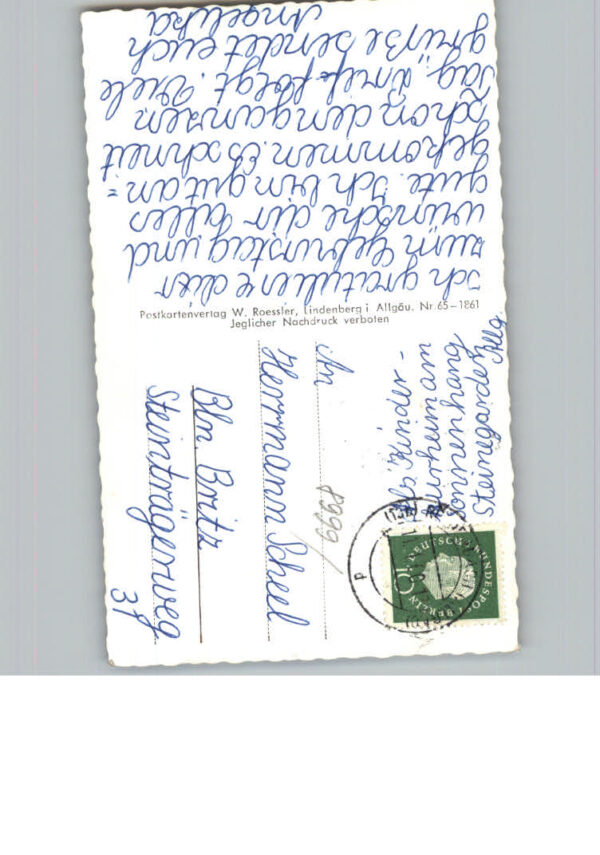 Ich gratuliere dier
zum Geburtstag und
wünsche dir alles
gute. Ich bin gut an=
gekommen. Es schneit
schon den ganzen
Tag. Brief folgt. Viele
grüße sendet euch
Angelika
Postkartenverlag W. Roessler, Lindenberg i Allgäu. Nr. 65-1861
Jeglicher Nachdruck verboten
Kinder-
kurheim am
Sonnenhang
Steinegarden
Allg.
10
DEUTSCHE BUNDESPOST BERLIN
An
8999
Herrmann Scheel
Bln Britz
Steinträgerweg
37